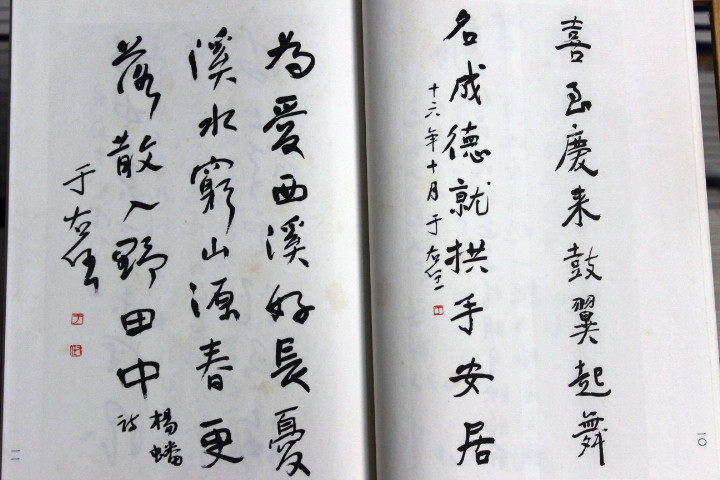 喜至慶来鼓翼起舞
名成德就拱手安居
十六年十月于右任
一〇
為愛西溪好長憂
溪水窮山源春更
落散入野田中
楊蟠
詩
于右任
一一